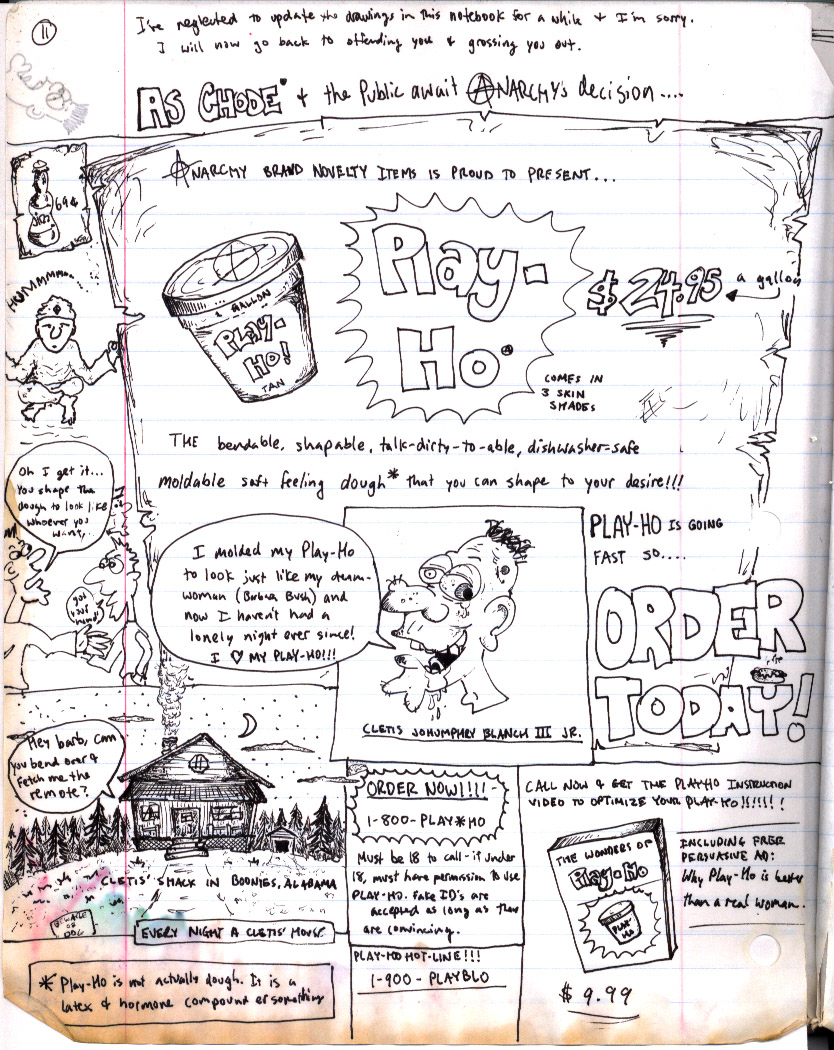 11
I've neglected to update the drawings in this notebook for a while & I'm sorry.
I will now go back to offending you & grossing you out.
AS CHODE & the Public await ANARCHY's decision....
ANARCHY BRAND NOVELTY ITEMS IS PROUD TO PRESENT...
694
HUMMMMMM...
1 GALLON
PLAY-
HO!
TAN
Play-
Ho
$24.95 a gallon
COMES IN
3 SKIN
SHADES
THE bendable, shapable, talk-dirty-to-able, dishwasher-safe
moldable soft feeling dough* that you can shape to your desire!!!
Oh I get it...
You shape the
dough to look like
whoever you
want...
got
your
I molded my Play-Ho
to look just like my dream-
woman (Barbara Bush) and
now I haven't had a
lonely night ever since!
I ♡ MY PLAY-HO!!!
CLETIS JOHUMPHRY BLANCH III JR.
PLAY-HO IS GOING
FAST SO....
ORDER
TODAY!
Hey barb, can
you bend over &
fetch me the
remote?
CLETIS' SHACK IN BOONIES, ALABAMA
BEWARE
OF
DOG
EVERY NIGHT A CLETIS' HOUSE.
ORDER NOW!!!!-
1-800-PLAY*HO
Must be 18 to call-if under
18, must have permission to use
PLAY-HO. Fake ID's are
accepted as long as they
are convincing.
PLAY-HO HOT-LINE!!!
1-900-PLAYBLO
CALL NOW & GET THE PLAYHO INSTRUCTION
VIDEO TO OPTIMIZE YOUR PLAY-HO!!!!!!!
THE WONDERS OF
Play-Ho
PLAY-
HO
$9.99
INCLUDING FREE
PERSUASIVE AD:
Why Play-Ho is better
than a real woman.
* Play-Ho is not actually dough. It is a
latex & hormone compound or something